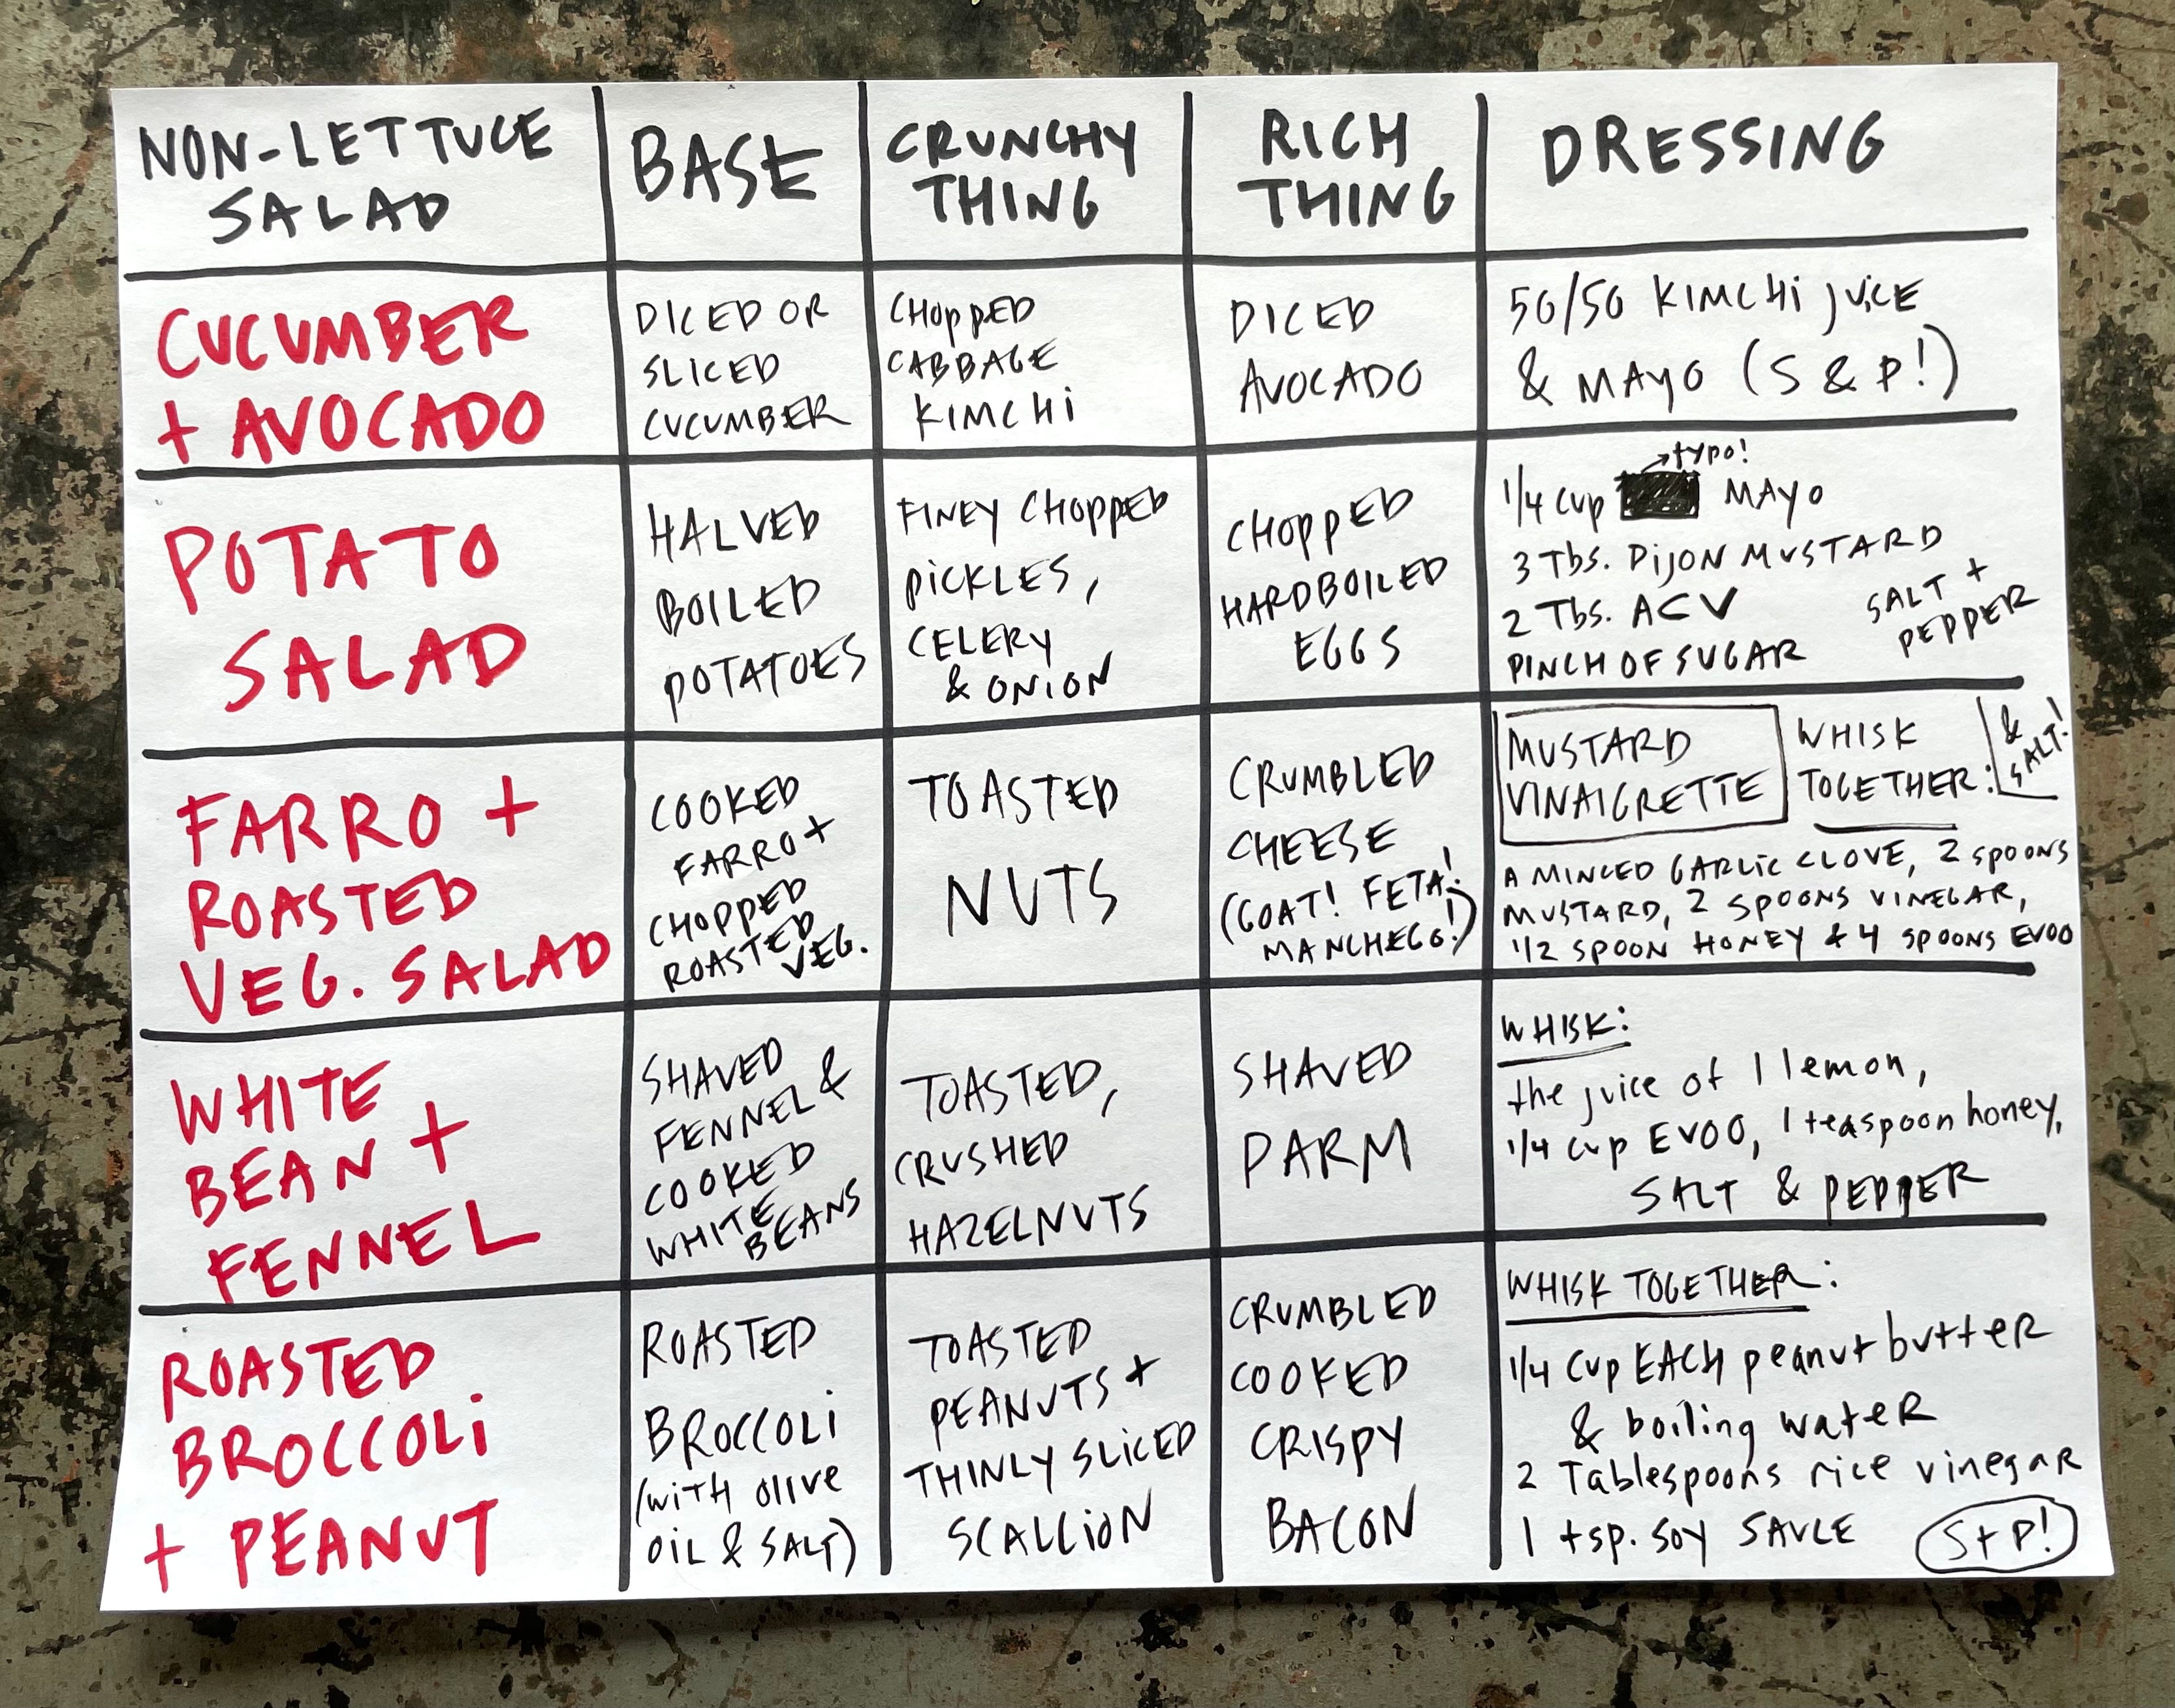 NON-LETTUCE
SALAD
BASE
CRUNCHY
THING
RICH
THING
DRESSING
CUCUMBER
+ AVOCADO
DICED OR
SLICED
CUCUMBER
CHOPPED
CABBAGE
KIMCHI
DICED
AVOCADO
50/50 KIMCHI JUICE
& MAYO (S & P!)
POTATO
SALAD
HALVED
BOILED
POTATOES
FINEY CHOPPED
PICKLES,
CELERY
& ONION
CHOPPED
HARDBOILED
EGGS
→typo!
1/4 CUP MAYO
3 Tbs. DIJON MUSTARD
2 Tbs. ACV
PINCH OF SUGAR
SALT +
PEPPER
FARRO +
ROASTED
VEG. SALAD
COOKED
FARRO +
CHOPPED
ROASTED
VEG.
TOASTED
NUTS
CRUMBLED
CHEESE
(GOAT! FETA!
MANCHEGO!)
MUSTARD
VINAIGRETTE
WHISK
TOGETHER:
&
SALT!
A MINCED GARLIC CLOVE, 2 SPOONS
MUSTARD, 2 SPOONS VINEGAR,
1/2 SPOON HONEY & 4 SPOONS EVOO
WHITE
BEAN +
FENNEL
SHAVED
FENNEL &
COOKED
WHITE
BEANS
TOASTED,
CRUSHED
HAZELNUTS
SHAVED
PARM
WHISK:
the juice of 1 lemon,
1/4 cup EVOO, 1 teaspoon honey,
SALT & PEPPER
ROASTED
BROCCOLI
+ PEANUT
ROASTED
BROCCOLI
(with olive
OIL & SALT)
TOASTED
PEANUTS +
THINLY SLICED
SCALLION
CRUMBLED
COOKED
CRISPY
BACON
WHISK TOGETHER:
1/4 CUP EACH peanut butter
& boiling water
2 Tablespoons rice vinegar
1 tsp. soy SAUCE
S + P!